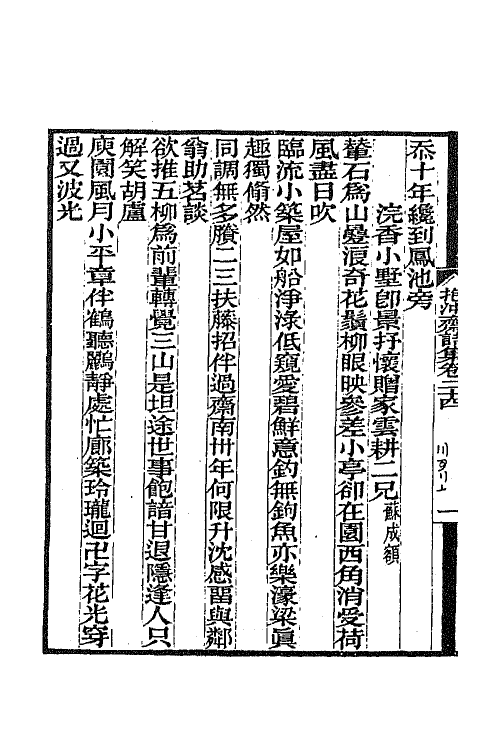 忝十年纔到鳳池旁
浣香小墅卽景抒懷贈家雲耕二兄蘇成額
輦石爲山疊浪奇花鬚柳眼映參差小亭卻在園西角消受荷
風盡日吹
臨流小築屋如船淨淥低窺愛碧鮮意釣無鉤魚亦樂濠梁眞
趣獨翛然
同調無多賸二三扶藤招伴過齋南卅年何限升沈感畱與鄰
翁助茗談
欲推五柳爲前輩轉覺三山是坦途世事飽諳甘退隱逢人只
解笑胡盧
庾園風月小平章伴鶴聽鸝靜處忙廊築玲瓏迴卍字花光穿
過又波光
抱沖齋詩集卷二十四
一